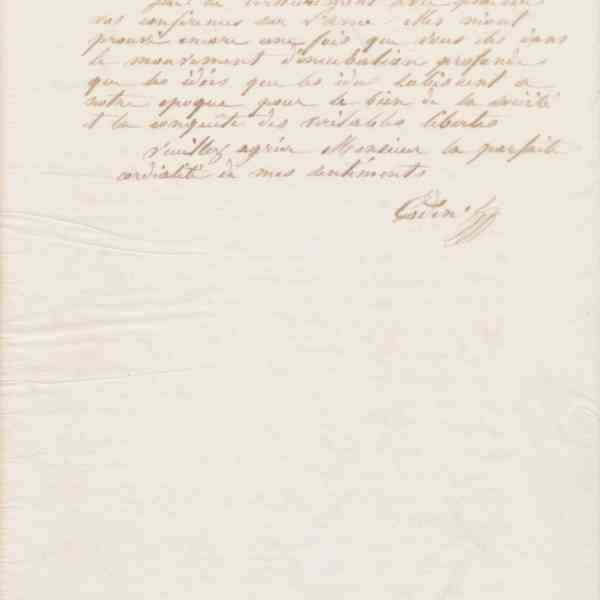 vos conférences sur l'âme. elles m'ont
prouvé encore une fois que vous êtes dans
le mouvement d'incubation profonde
que les idées que les subissent à
notre époque pour le bien de la société
et la conquête des véritables libertés
Veuillez agréer Monsieur la parfaite
cordialité de mes sentiments
Godin